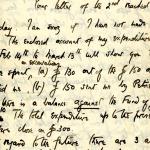 Your letter of the 2nd reached
day. I am sorry if I have not made
The enclosed account of my expenditure
Feb 14th to March 13th will show you
in excavating
spent (a) £130 out of the £150
and (b) £150 sent us by Petrie
there is a balance against the Fund of
The total expenditure up to the present
close on £300
regard to the future there are 3 a